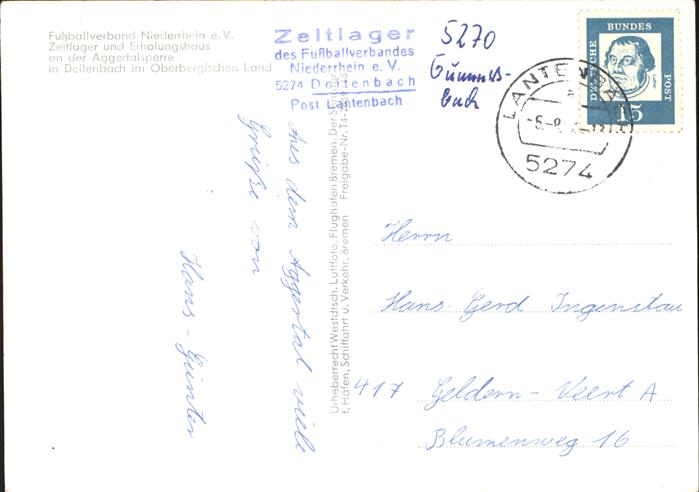 Fußballverband Niederrhein e.V.
Zeltlager und Erholungshaus
an der Aggertalsperre
in Deitenbach im Oberbergischen Land
Zeltlager
des Fußballverbandes
Niederrhein e. V.
5274 Deitenbach
Post Lantenbach
5270
Gummers-
bach
LANTENBACH
-6.-8.
5274
DEUTSCHE
BUNDES
POST
15
Aus dem Aggertal viele
Grüße von
Hans-Günter
Urheberrecht Westdtsch. Luftfoto, Flughafen Bremen. Der
f. Häfen, Schiffahrt u. Verkehr, Bremen Freigabe-Nr. T4-
Herrn
Hans Gerd Ingenstau
417 Geldern-Veert A
Blumenweg 16